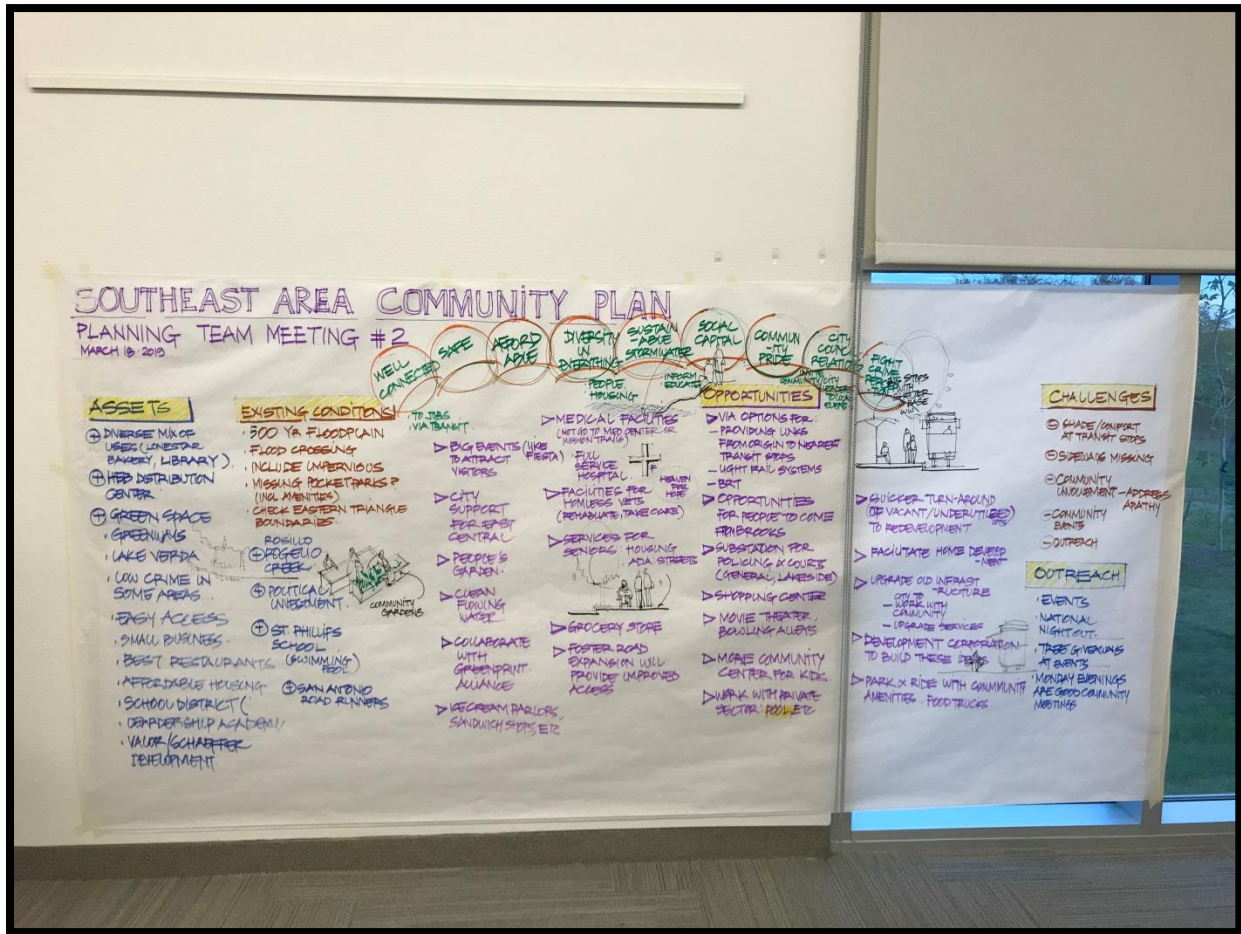 SOUTHEAST AREA COMMUNITY PLAN
PLANNING TEAM MEETING #2
MARCH 18 2019
WELL CONNECTED
SAFE
AFFORD ABLE
DIVERSITY IN EVERYTHING
SUSTAIN -ABLE STORMWATER
SOCIAL CAPITAL
COMMUN -ITY PRIDE
CITY COUNC RELATION
FIGHT CRIME
· TO JOBS
· VIA TRANSIT
PEOPLE
HOUSING
INFORM
EDUCATE
COMMUNITY/CITY
ASSETS
⊕ DIVERSE MIX OF
USES (LONESTAR
BAKERY, LIBRARY).
⊕ HEB DISTRIBUTION
CENTER
⊕ GREEN SPACE
· GREENWAYS
· LAKE VERDA
· LOW CRIME IN
SOME AREAS.
· EASY ACCESS
· SMALL BUSINESS
· BEST RESTAURANTS
· AFFORDABLE HOUSING
· SCHOOL DISTRICT (
ACADEMY
· VALOR/SCHAEFFER
DEVELOPMENT
EXISTING CONDITIONS
· 500 YR FLOODPLAIN
· FLOOD CROSSING
· INCLUDE IMPERVIOUS
· MISSING POCKET PARKS?
(INCL AMENITIES)
· CHECK EASTERN TRIANGLE
BOUNDARIES
ROSILLO
⊕ ROGELIO
CREEK
⊕ POLITICAL
INVESTMENT.
⊕ ST. PHILLIPS
SCHOOL
(SWIMMING
POOL)
⊕ SAN ANTONIO
ROAD RUNNERS
COMMUNITY
GARDENS
▷ BIG EVENTS (LIKE
TO ATTRACT FIESTA)
VISITORS
▷ CITY
SUPPORT
FOR EAST
CENTRAL
▷ PEOPLE'S
GARDEN
▷ CLEAN
FLOWING
WATER
▷ COLLABORATE
WITH
GREENPRINT
ALLIANCE
▷ ICE CREAM PARLORS,
SANDWICH SHOPS, ETC
▷ MEDICAL FACILITIES
(NOT GO TO MED CENTER OR
MISSION TRAIL)
· FULL
SERVICE
HOSPITAL.
▷ FACILITIES FOR
HOMLESS VETS
(REHABILIATE, TAKE CARE)
HEAVEN
FOR
HOPE
▷ SERVICES FOR
SENIORS: HOUSING
ADA: STREETS
▷ GROCERY STORE
▷ FOSTER ROAD
EXPANSION WILL
PROVIDE IMPROVED
ACCESS
OPPORTUNITIES
▷ VIA OPTIONS FOR:
- PROVIDING LINKS
FROM ORIGIN TO NEAREST
TRANSIT STOPS
- LIGHT RAIL SYSTEMS
- BRT
▷ OPPORTUNITIES
FOR PEOPLE TO COME
FROM BROOKS
▷ SUBSTATION FOR
POLICING & COURTS
(GENERAL, LAKESIDE)
▷ SHOPPING CENTER
▷ MOVIE THEATER,
BOWLING ALLEYS
▷ MORE COMMUNITY
CENTER FOR KIDS.
▷ WORK WITH PRIVATE
SECTOR: POOL, ETC
BUS STOPS
WITH
▷ QUICKER TURN-AROUND
(OF VACANT/UNDERUTILIZED)
TO REDEVELOPMENT
▷ FACILITATE HOME DEVELOP
-MENT
▷ UPGRADE OLD INFRAST
-RUCTURE
CITY TO
- WORK WITH
COMMUNITY
- UPGRADE SERVICES
▷ DEVELOPMENT CORPORATION
TO BUILD THESE IDEAS
▷ PARK & RIDE WITH COMMMUNITY
AMENITIES. FOOD TRUCKS
CHALLENGES
⊖ SHADE/COMFORT
AT TRANSIT STOPS
⊖ SIDEWALKS MISSING
⊖ COMMUNITY
INVOLVEMENT - ADDRESS
APATHY
- COMMUNITY
EVENTS
⊖ OUTREACH
OUTREACH
· EVENTS
· NATIONAL
NIGHT OUT.
· TREE GIVEAWAYS
AT EVENTS
· MONDAY EVENINGS
ARE GOOD COMMUNITY
MEETINGS